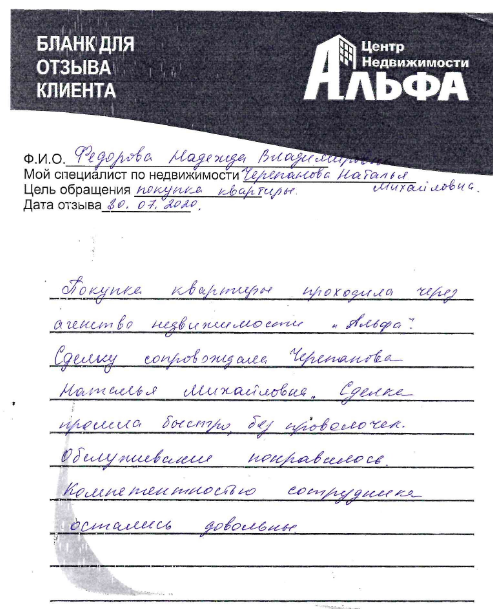 БЛАНК ДЛЯ
ОТЗЫВА
КЛИЕНТА
Центр
Недвижимости
АЛЬФА
Ф.И.О. Федорова Надежда Владимировна
Мой специалист по недвижимости Черепанова Наталья
Цель обращения покупка квартиры. Михайловна.
Дата отзыва 20.07.2020.
Покупка квартиры проходила через
агенство недвижимости „Альфа".
Сделку сопровождала Черепанова
Наталья Михайловна. Сделка
прошла быстро, без проволочек.
Обслуживание понравилось.
Компетентностью сотрудника
остались довольны